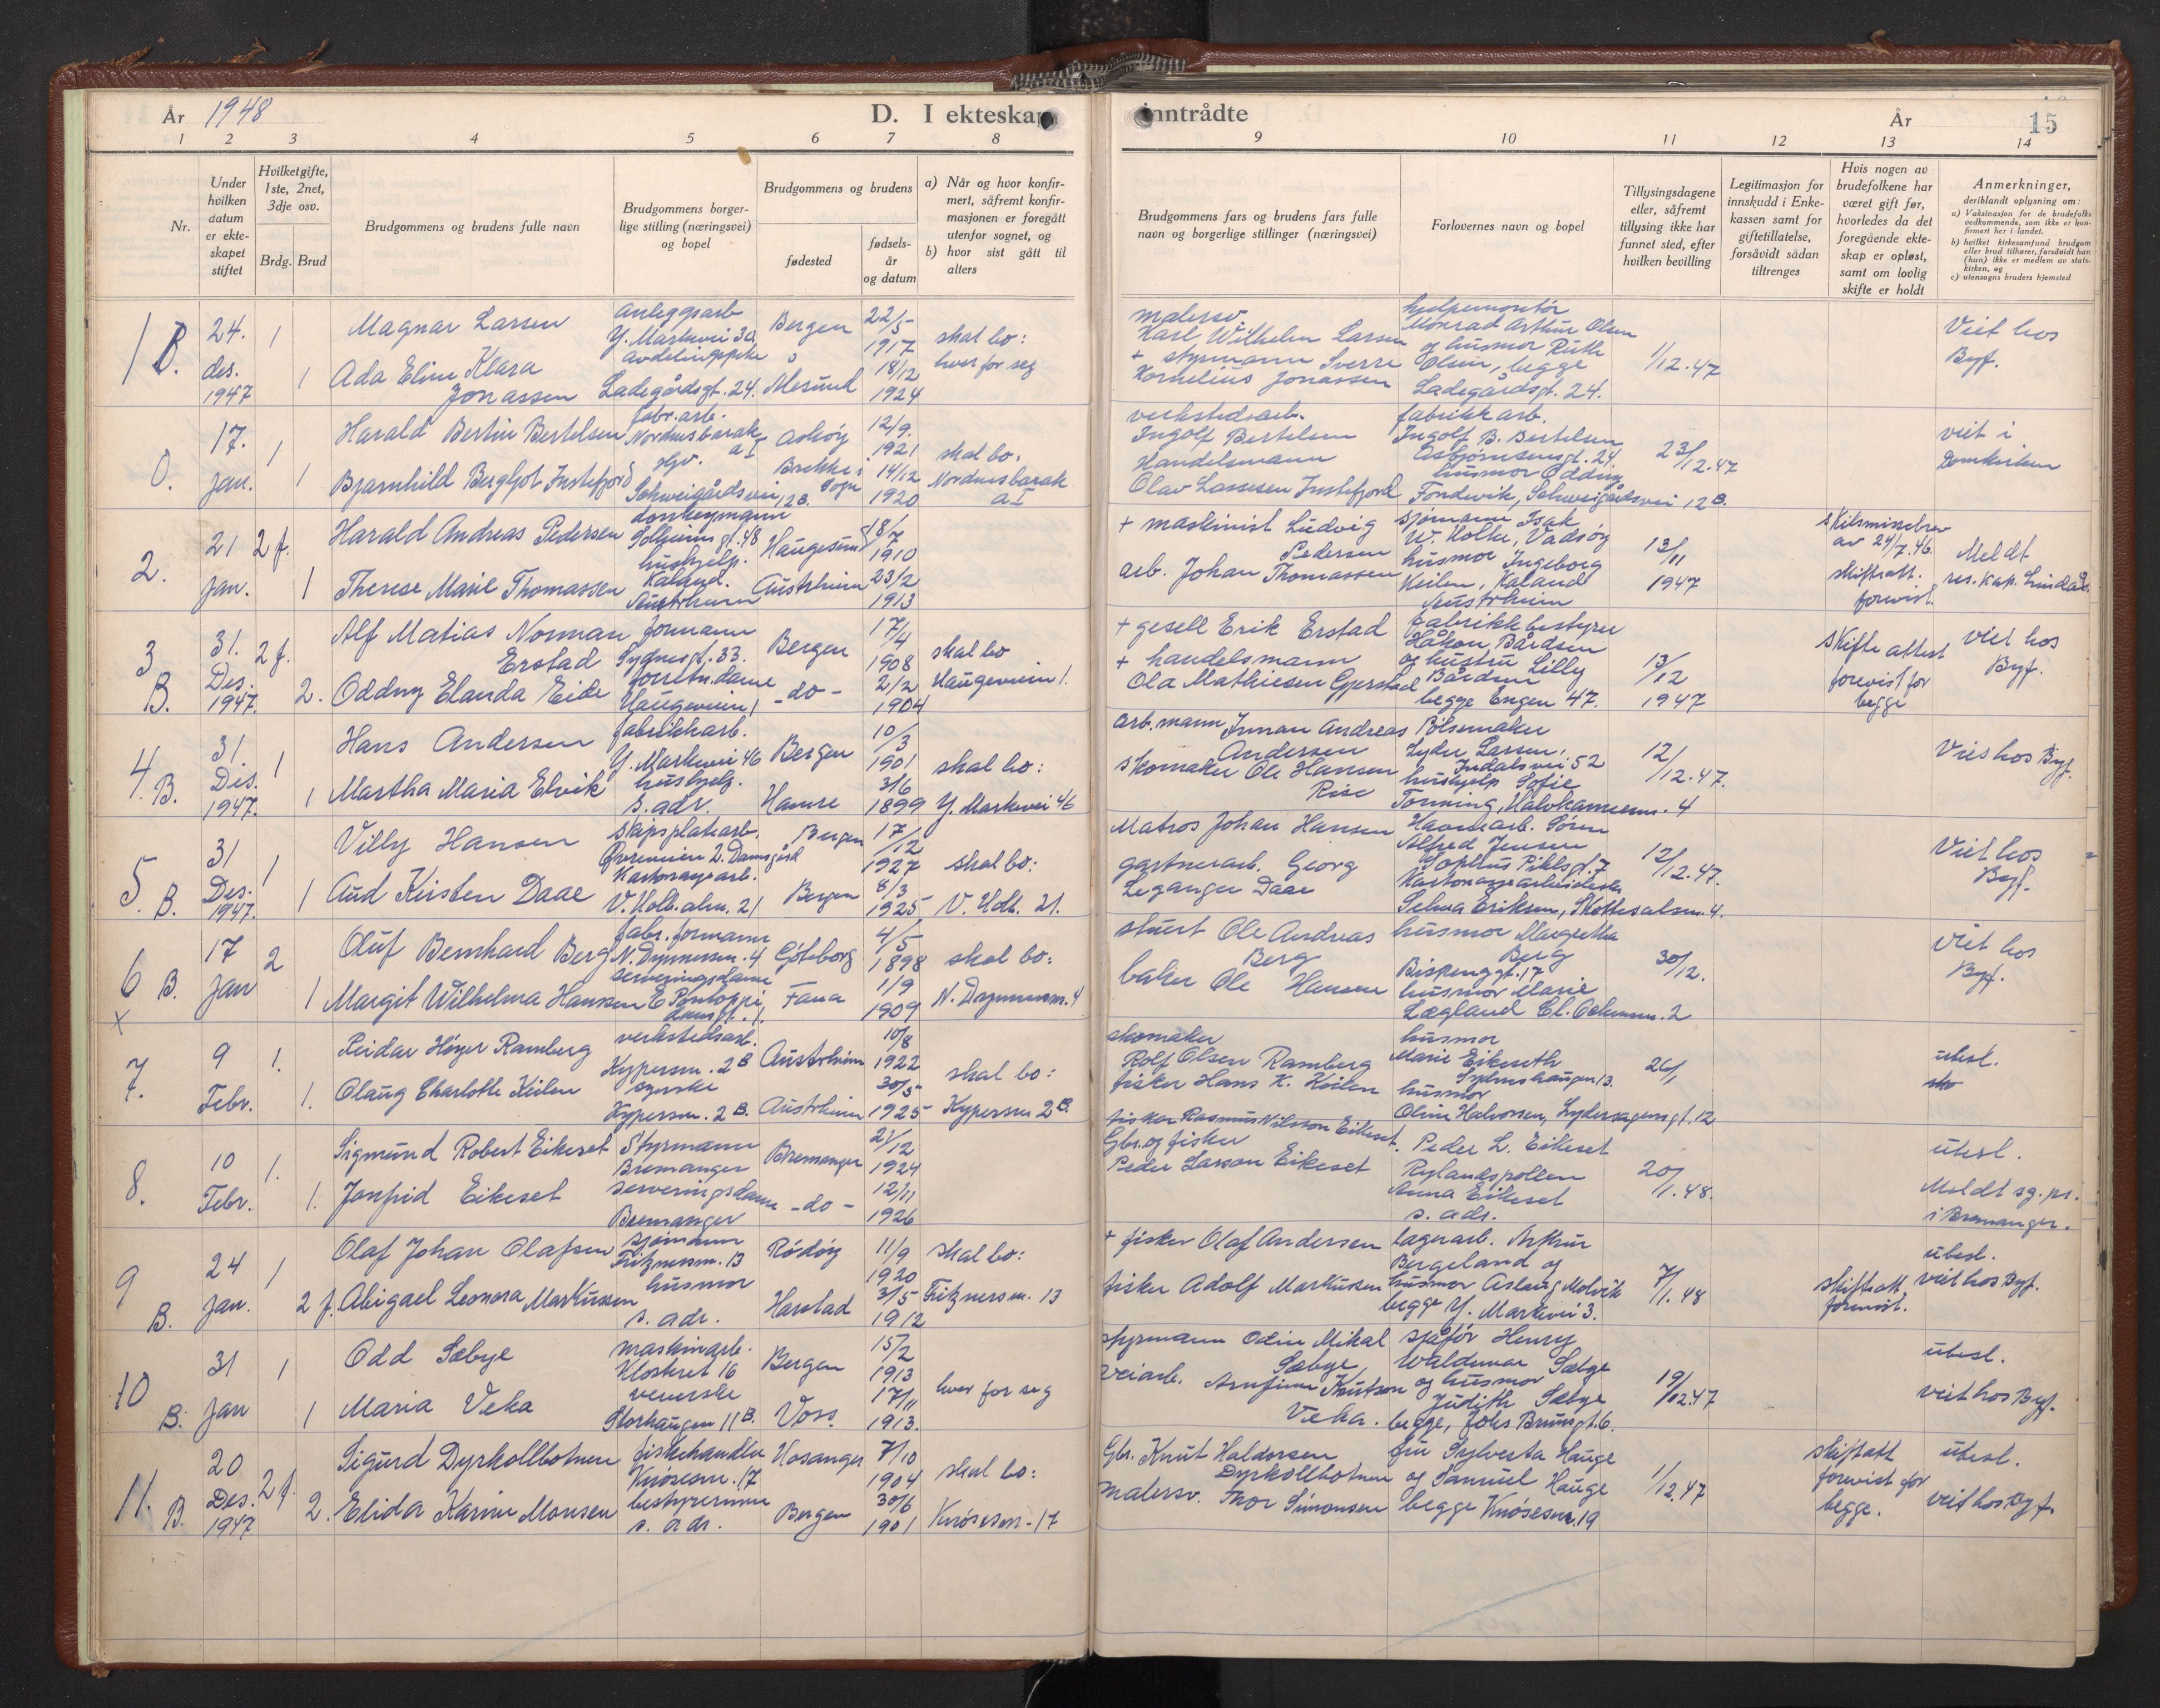 År 1948
D. I ekteskap
inntrådte
År
15
1 2 3 4 5 6 7 8
9 10 11 12 13 14
Nr.
Under hvilken datum er ekteskapet stiftet
Hvilket gifte, 1ste, 2net, 3dje osv.
Brdg. Brud
Brudgommens og brudens fulle navn
Brudgommens borgerlige stilling (næringsvei) og bopel
Brudgommens og brudens
fødested
fødselsår og datum
a) Når og hvor konfirmert, såfremt konfirmasjonen er foregått utenfor sognet, og
b) hvor sist gått til alters
Brudgommens fars og brudens fars fulle navn og borgerlige stillinger (næringsvei)
Forlovernes navn og bopel
Tillysingsdagene eller, såfremt tillysing ikke har funnet sted, efter hvilken bevilling
Legitimasjon for innskudd i Enkekassen samt for giftetillatelse, forsåvidt sådan tiltrenges
Hvis nogen av brudefolkene har været gift før, hvorledes da det foregående ekteskap er opløst, samt om lovlig skifte er holdt
Anmerkninger, deriblandt oplysning om:
a) Vaksinasjon for de brudefolks vedkommende, som ikke er konfirmert her i landet.
b) hvilket kirkesamfund brudgom eller brud tilhører, forsåvidt han (hun) ikke er medlem av statskirken, og
c) utensogns bruders hjemsted
1 B. 24. des. 1947 1 1
Magnar Larsen
anleggsarb. Y. Markevei 3a
Bergen 22/5 1917
Ada Eline Klara Jonassen
Ladegårdsgt. 24. 18/12 1924
skal bo: hver for seg
malersv. Karl Wilhelm Larsen
+ styrmann Sverre Kornelius Jonassen
hjelpemontør Monrad Arthur Olsen og husmor Ruth Olsen, begge Ladegårdsgt. 24.
1/12.47
Viet hos Byf.
0. 17. jan. 1 1
Harald Bertin Bertelsen
fabr.arb. Nordnesbarak a I
Askøy 12/9. 1921
Bjarnhild Bergljot Instefjord
Schweigårdsvei 12B.
Brekke i Sogn 14/12 1920
skal bo: Nordnesbarak a I
verkstedsarb. Ingolf Bertelsen
Handelsmann Olav Lassesen Instefjord
fabrikkarb. Ingolf B. Bertelsen Asbjørnsensgt. 24.
husmor Oddny Fondevik, Schweigårdsvei 12B.
23/12.47
viet i Domkirken
2. 21 jan. 2 f. 1
Harald Andreas Pedersen
Solheimsgt. 48
Haugesund 18/7 1910
Therese Marie Thomassen
hushjelp. Kaland. Austrheim
Austrheim 23/2 1913
+ maskinist Ludvig Pedersen
arb. Johan Thomassen
sjømann Isak W. Holke, Vadsøy
husmor Ingeborg Keilen, Kaland Austrheim
13/11 1947
skilsmissebrev av 24/7.46. skifteatt. forevist.
Meldt res. kap. Lindås.
3 B. 31. Des. 1947. 2 f. 2.
Alf Matias Norman Erstad
formann Sydnesgt. 33.
Bergen 17/4 1908
Oddny Elanda Eide
Haugeveien 1
-do- 2/2 1904
skal bo Haugeveien 1.
+ gesell Erik Erstad
+ handelsmann Ola Mathiesen Gjerstad
fabrikkbestyrer Håkon Bårdsen og hustru Lilly Bårdsen begge Engen 47.
13/12 1947
Skifteattest forevist for begge
viet hos Byf.
4. B. 31. Des. 1947. 1 1
Hans Andersen
fabrikkarb. Y. Markevei 46
Bergen 10/3 1901
Martha Maria Elvik
hushjelp. s. adr.
Hamre 3/6 1899
skal bo: Y. Markevei 46
arb.mann Inman Andreas Andersen
skomaker Ole Hansen Rise
Pølsemaker Lyder Larsen, Indalsvei 52
hushjelp Sofie Tonning, 4
12/12.47.
Viet hos Byf.
5. B. 31 Des. 1947. 1 1
Villy Hansen
skipsplatearb. Damsgård
Bergen 17/12 1927
Aud Kirsten Daae
Kartonagearb. V. Holb. alm. 21
Bergen 8/3 1925
skal bo: V. Holb. 21.
Matros Johan Hansen
gartnerarb. Georg Leganger Daae
Havnearb. Søren Alfred Jensen Sophus Pihlsgt. 7
Kartonagearbeiderske Selma Eriksen, Skottesalm. 4.
12/12.47.
Viet hos Byf.
6 B. x 17 Jan 2 1
Oluf Bernhard Berg
fabr. formann N. Dypmersm. 4
Göteborg 4/5 1898
Margit Wilhelma Hansen
serveringsdame E. Pontoppidansgt. 1.
Fana 1/9 1909
skal bo: N. Dypmersm. 4
stuert Ole Andreas Berg
baker Ole Hansen
husmor Margretha Berg Bispenggt. 17
husmor Marie Lægland 2
30/12.
Viet hos Byf.
7. 9 Febr. 1. 1.
Reidar Høyer Ramberg
verkstedsarb. Kypersm. 2B
Austrheim 10/8 1922
Olaug Charlotte Keilen
syerske Kypersm. 2B.
Austrheim 30/5 1925
skal bo: Kypersm 2B.
skomaker Rolf Olsen Ramberg
fisker Hans K. Keilen
husmor Marie Eikeseth Sydneshaugen 13.
husmor Oline Halvorsen, Lydersagensgt. 12
26/1
ubesl.
8. 10 Febr. 1. 1.
Sigmund Robert Eikeset
Styrmann Bremanger
Bremanger 21/12 1924
Jonfrid Eikeset
serveringsdame Bremanger
-do- 12/11 1926
fisker Rasmus Nilsson Eikeset.
Gbr. og fisker Peder Larsson Eikeset
Peder L. Eikeset Rylandspollen
Anna Eikeset s. adr.
20/1.48.
ubesl.
Meldt sg. pr. i Bremanger.
9 B. 24 Jan. 1 2 f.
Olaf Johan Olafsen
sjømann Fritznersm. 13
Rødøy 11/9 1920
Abigael Leonora Markussen
husmor s. adr.
Harstad 3/5 1912
skal bo: Fritznersm. 13
+ fisker Olaf Andersen
fisker Adolf Markussen
lagerarb. Arthur Bergeland og husmor Aslaug Molvik begge Y. Markevei 3.
7/1.48
skifteatt. forevist.
ubesl. viet hos Byf.
10 B. 31 Jan 1 1
Odd Sæbye
maskinarb. Klosteret 16
Bergen 15/2 1913
Maria Veka
veverske Storhaugen 11B.
Voss 17/11 1913.
hver for seg
styrmann Odin Mikal Sæbye
veiarb. Arnfinn Knutson Veka.
sjåfør Henry Waldemar Sæbye og husmor Judith Sæbye begge, Johs Brunsgt. 6.
19/12.47
ubesl.
viet hos Byf.
11. B. 20 Des. 1947 2 f. 2.
Sigurd Dyrkollbotnen
fiskehandler Knøsesm. 17
Hosanger 7/10 1904
Elida Karine Monsen
bestyrerinne s. adr.
Bergen 30/6 1901
skal bo: Knøsesm. 17
Gbr. Knut Haldorsen Dyrkollbotnen
malersv. Thor Simonsen
fru Sylvesta Hauge og Samuel Hauge begge Knøsesm. 19
1/12.47
skifteatt forevist for begge.
ubesl.
viet hos Byf.